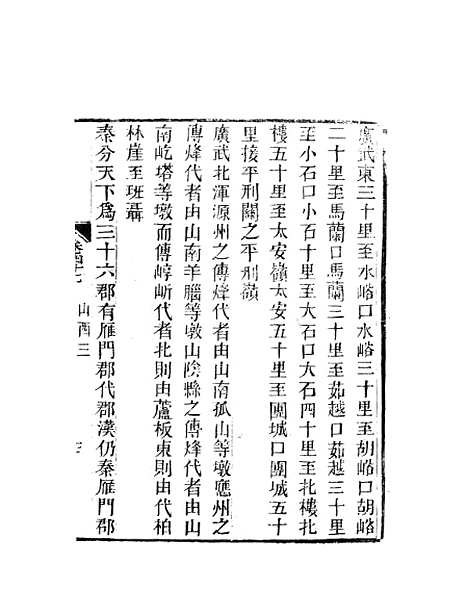 廣武東三十里至水峪口水峪三十里至胡峪口胡峪
二十里至馬蘭口馬蘭三十里至茹越口茹越三十里
至小石口小石十里至大石口大石四十里至北樓北
樓五十里至太安嶺太安五十里至團城口團城五十
里接平刑關之平刑嶺
廣武北渾源州之傳烽代者由山南孤山等墩應州之
傳烽代者由山南羊腦等墩山陰縣之傳烽代者由山
南屹塔等墩而傳崞㟁代者北則由蘆板東則由代柏
林崖至班聶
秦分天下爲三十六郡有雁門郡代郡漢仍秦雁門郡
山西三